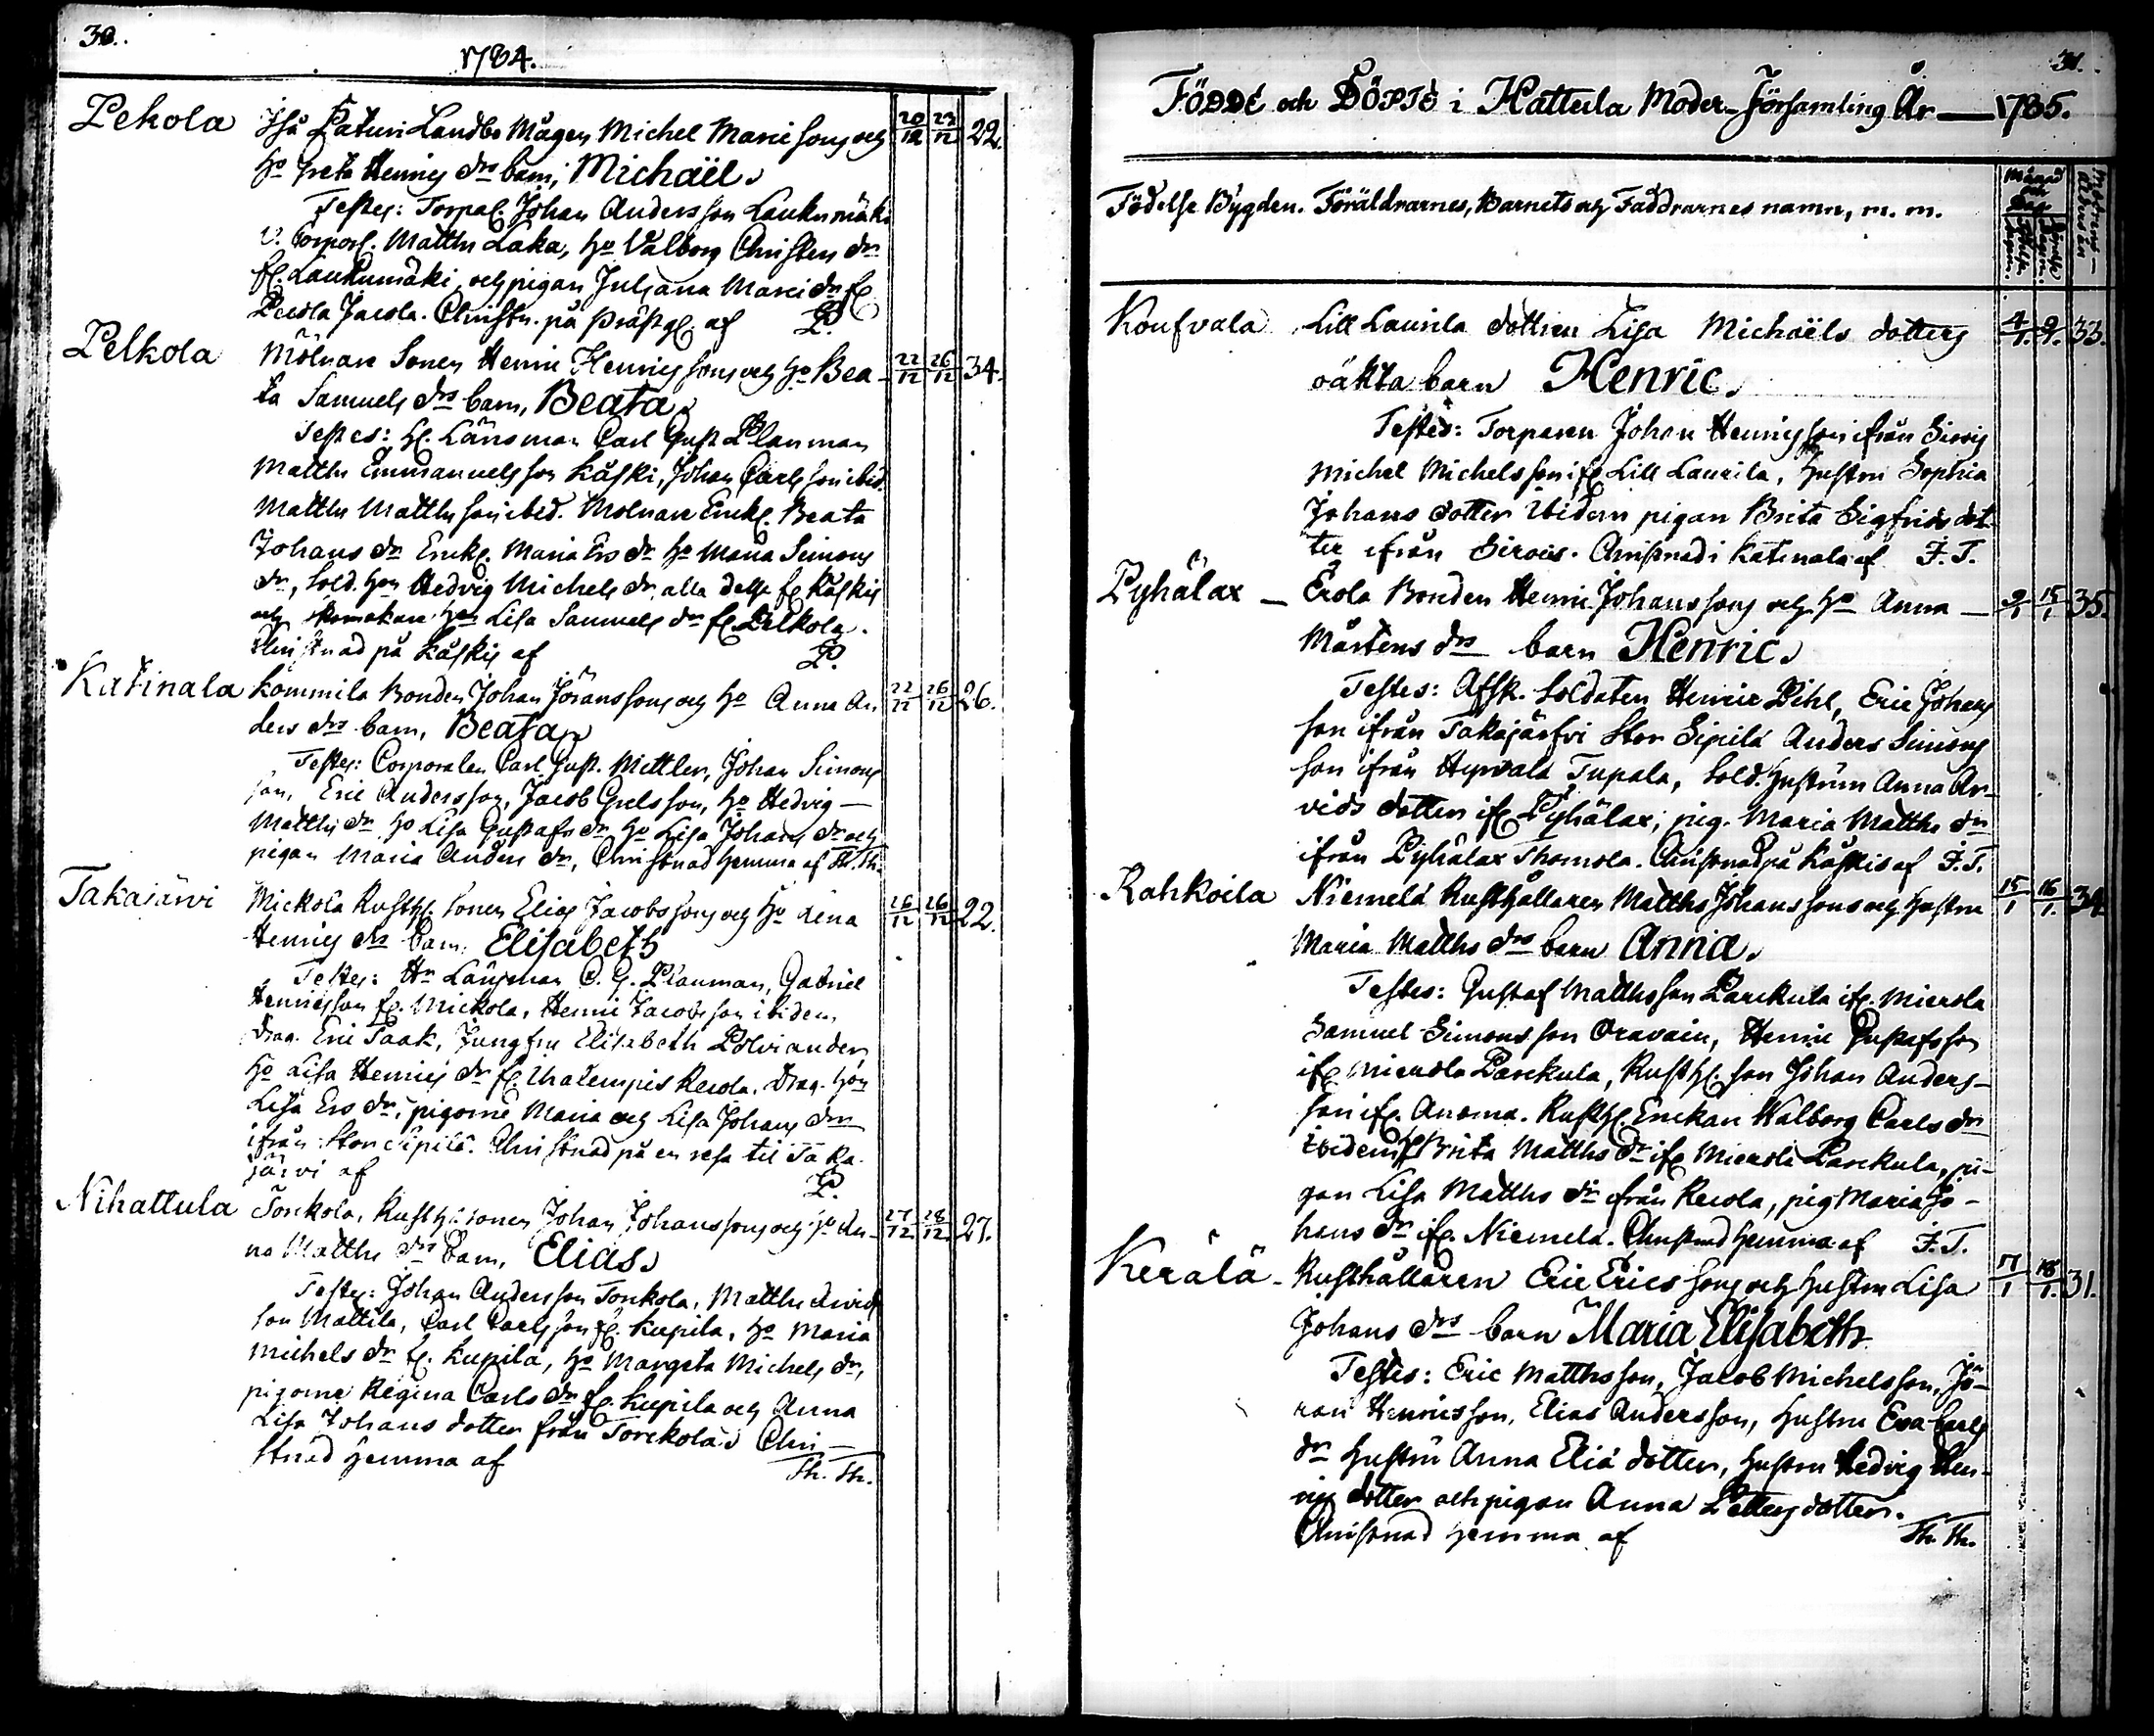 30.
1784.
Pekola Iså Paturi Landbo Mågen Michel Marcissons och 20/12 23/12 22.
ho Greta Henrics drs barn, Michaël.
Testes: Torpar. Johan Andersson Laukumäki
V. Corporl. Matths Laka, ho Valborg Christers dr
fr. Laukumäki, och pigan Juliana Marci dr fr
Jacola. Christn. på Prästg. af P.
Pelkola Mölnare Sonen Henric Henricssons och ho Bea- 22/12 26/12 34.
ta Samuels drs barn, Beata.
Testes: H. Länsman Carl Gust. Planman
Matths Emmanuelsson Kåski, Johan Carlsson ibid.
Matths Matthsson ibid. Molnare Enkl. Beata
Johans dr Enkl. Maria Ers dr ho Maria Simons
dr, Sold. hon Hedvig Michels dr, alla desse fr Kåskis
och skomakare hon Lisa Samuels dr fr. Pelkola.
Christnad på Kåskis af P.
Katinala Kommila Bonden Johan Jöranssons och ho Anna An 22/12 26/12 26.
ders drs barn, Beata
Testes: Corporalen Carl Gust. Mittler, Johan Simons
son, Eric Andersson, Jacob Grelsson, ho Hedvig
Matths dr ho Lisa Gustafs dr ho Lisa Johans dr och
pigan Maria Anders dr, Christnad hemma af Th. Th.
Takajärvi Mickola Rusth. sonen Elias Jacobssons och ho Lena 26/12 26/12 22.
Henrics drs barn. Elisabeth
Testes: Hr Länsman C. G. Planman, Gabriel
Henricsson fr. Mickola, Henric Jacobsson ibidem,
Drag. Eric Saak, Jungfru Elisabeth Polviander
ho Lisa Henrics dr fr. Drag. hon
Lisa Ers dr, pigorne Maria och Lisa Johans drr
ifrån Stor Sipilä. Christnad på en resa til Taka-
järvi af P.
Nihattula Tonkola, Rusth. sonen Johan Johanssons och ho An- 27/12 28/12 27.
na Matths drs barn, Elias.
Testes: Johan Andersson Tonkola, Matths Arvids
son Mattila, Carl Carlsson fr. Kupila, ho Maria
Michels dr fr. Kupila, ho Margeta Michels dr,
pigorne Regina Carls dr fr. Kupila och Anna
Lisa Johans dotter från Torckola. Chri-
stnad hemma af Th. Th.
31.
FÖDDE och DÖPTE i Hattula Moder-Församling År 1785.
Födelse Bygden. Föräldrarnes, Barnets och Faddrarnes namn, m. m.
Månad och Dag
Moderns ålders år
Koufvala Lill Laurila dottren Lisa Michaëls dotters 4/1. 9/1. 33.
oäkta barn Henric.
Testes: Torparen Johan Henricsson ifrån Sirois
Michel Michelsson ifr Lill Laurila, hustru Sophia
Johans dotter ibidem pigan Brita Sigfrids dot-
ter ifrån Sirois. Christnad i Katinala af F. T.
Pyhälax Erola Bonden Henric Johanssons och ho Anna 9/1 15/1 35.
Mårtens drs barn Henric.
Testes: Afsk. Soldaten Henric Pihl, Eric Johans
son ifrån Takajärfvi Stor Sipilä Anders Simons
son ifrån Hyrvala Tupala, Sold. hustrun Anna Ar-
vids dotter ifr Pyhälax, pig. Maria Matths dr
ifrån Pyhälax Thomola. Christnad på Kåskis af F. T.
Rahkoila Niemelä Rusthållaren Matths Johanssons och hustru 15/1 16/1. 34.
Maria Matths drs barn Anna.
Testes: Gustaf Matthsson Parckula ifr. Mierola
Samuel Simonsson Oravain, Henric Gustafsson
ifr Mierola Parckula, Rusth. son Johan Anders-
son ifr. Ansma. Rusth. Enckan Walborg Carls dr
ibidem ho Brita Matths dr ifr Mierola Parckula, pi-
gan Lisa Matths dr ifrån Recola, pig Maria Jo-
hans dr ifr. Niemelä. Christnad hemma af F. T.
Kerälä Rusthållaren Eric Ericssons och hustru Lisa 17/1 18/1. 31.
Johans drs barn Maria Elisabeth.
Testes: Eric Matthsson, Jacob Michelsson, Jö-
ran Henricsson, Elias Andersson, hustru Eva Carls
dr hustru Anna Eliæ dotter, hustru Hedvig Hen-
rics dotter och pigan Anna Petters dotter.
Christnad hemma af Th. Th.